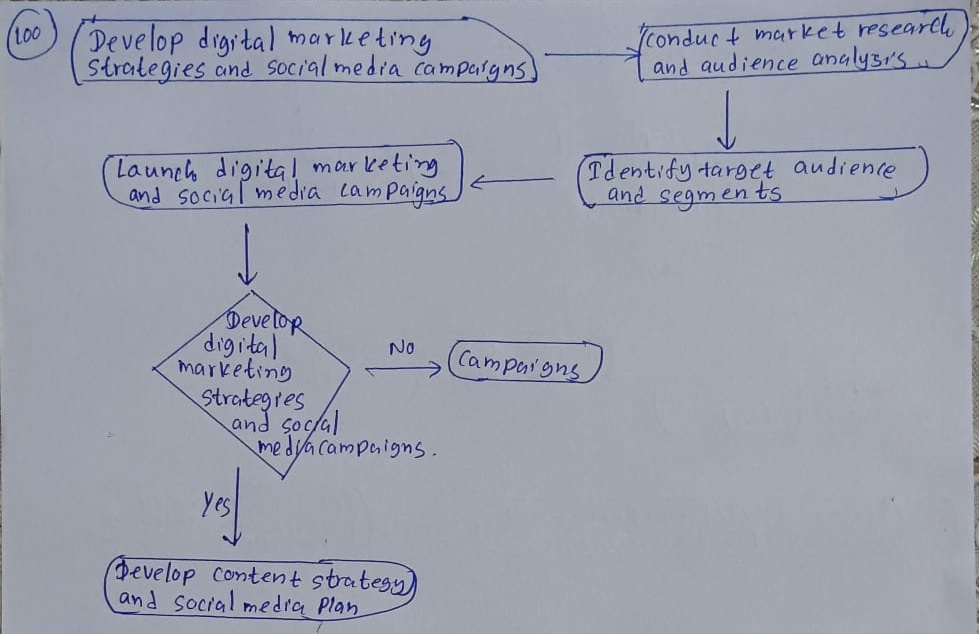 100
Develop digital marketing
strategies and social media campaigns
conduct market research
and audience analysis.
Identify target audience
and segments
Launch digital marketing
and social media campaigns
Develop
digital
marketing
strategies
and social
media campaigns.
No
Campaigns
Yes
Develop content strategy
and social media plan